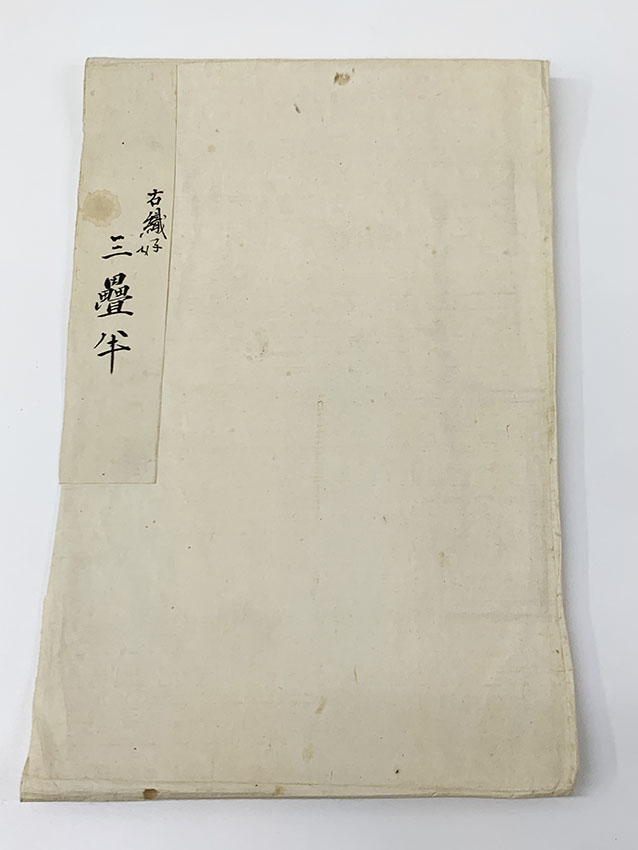 古織好
三疊半